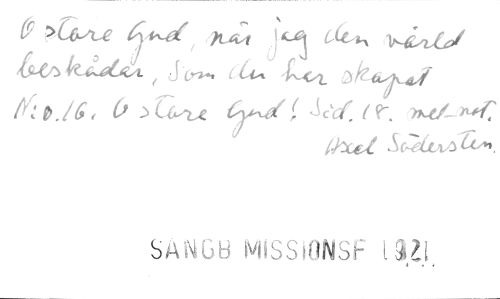 O store Gud, när jag den värld
beskådar, som du har skapat
N:o.16. O store Gud! Sid. 18. mel-not.
Axel Södersten.
SANGB MISSIONSF 1921